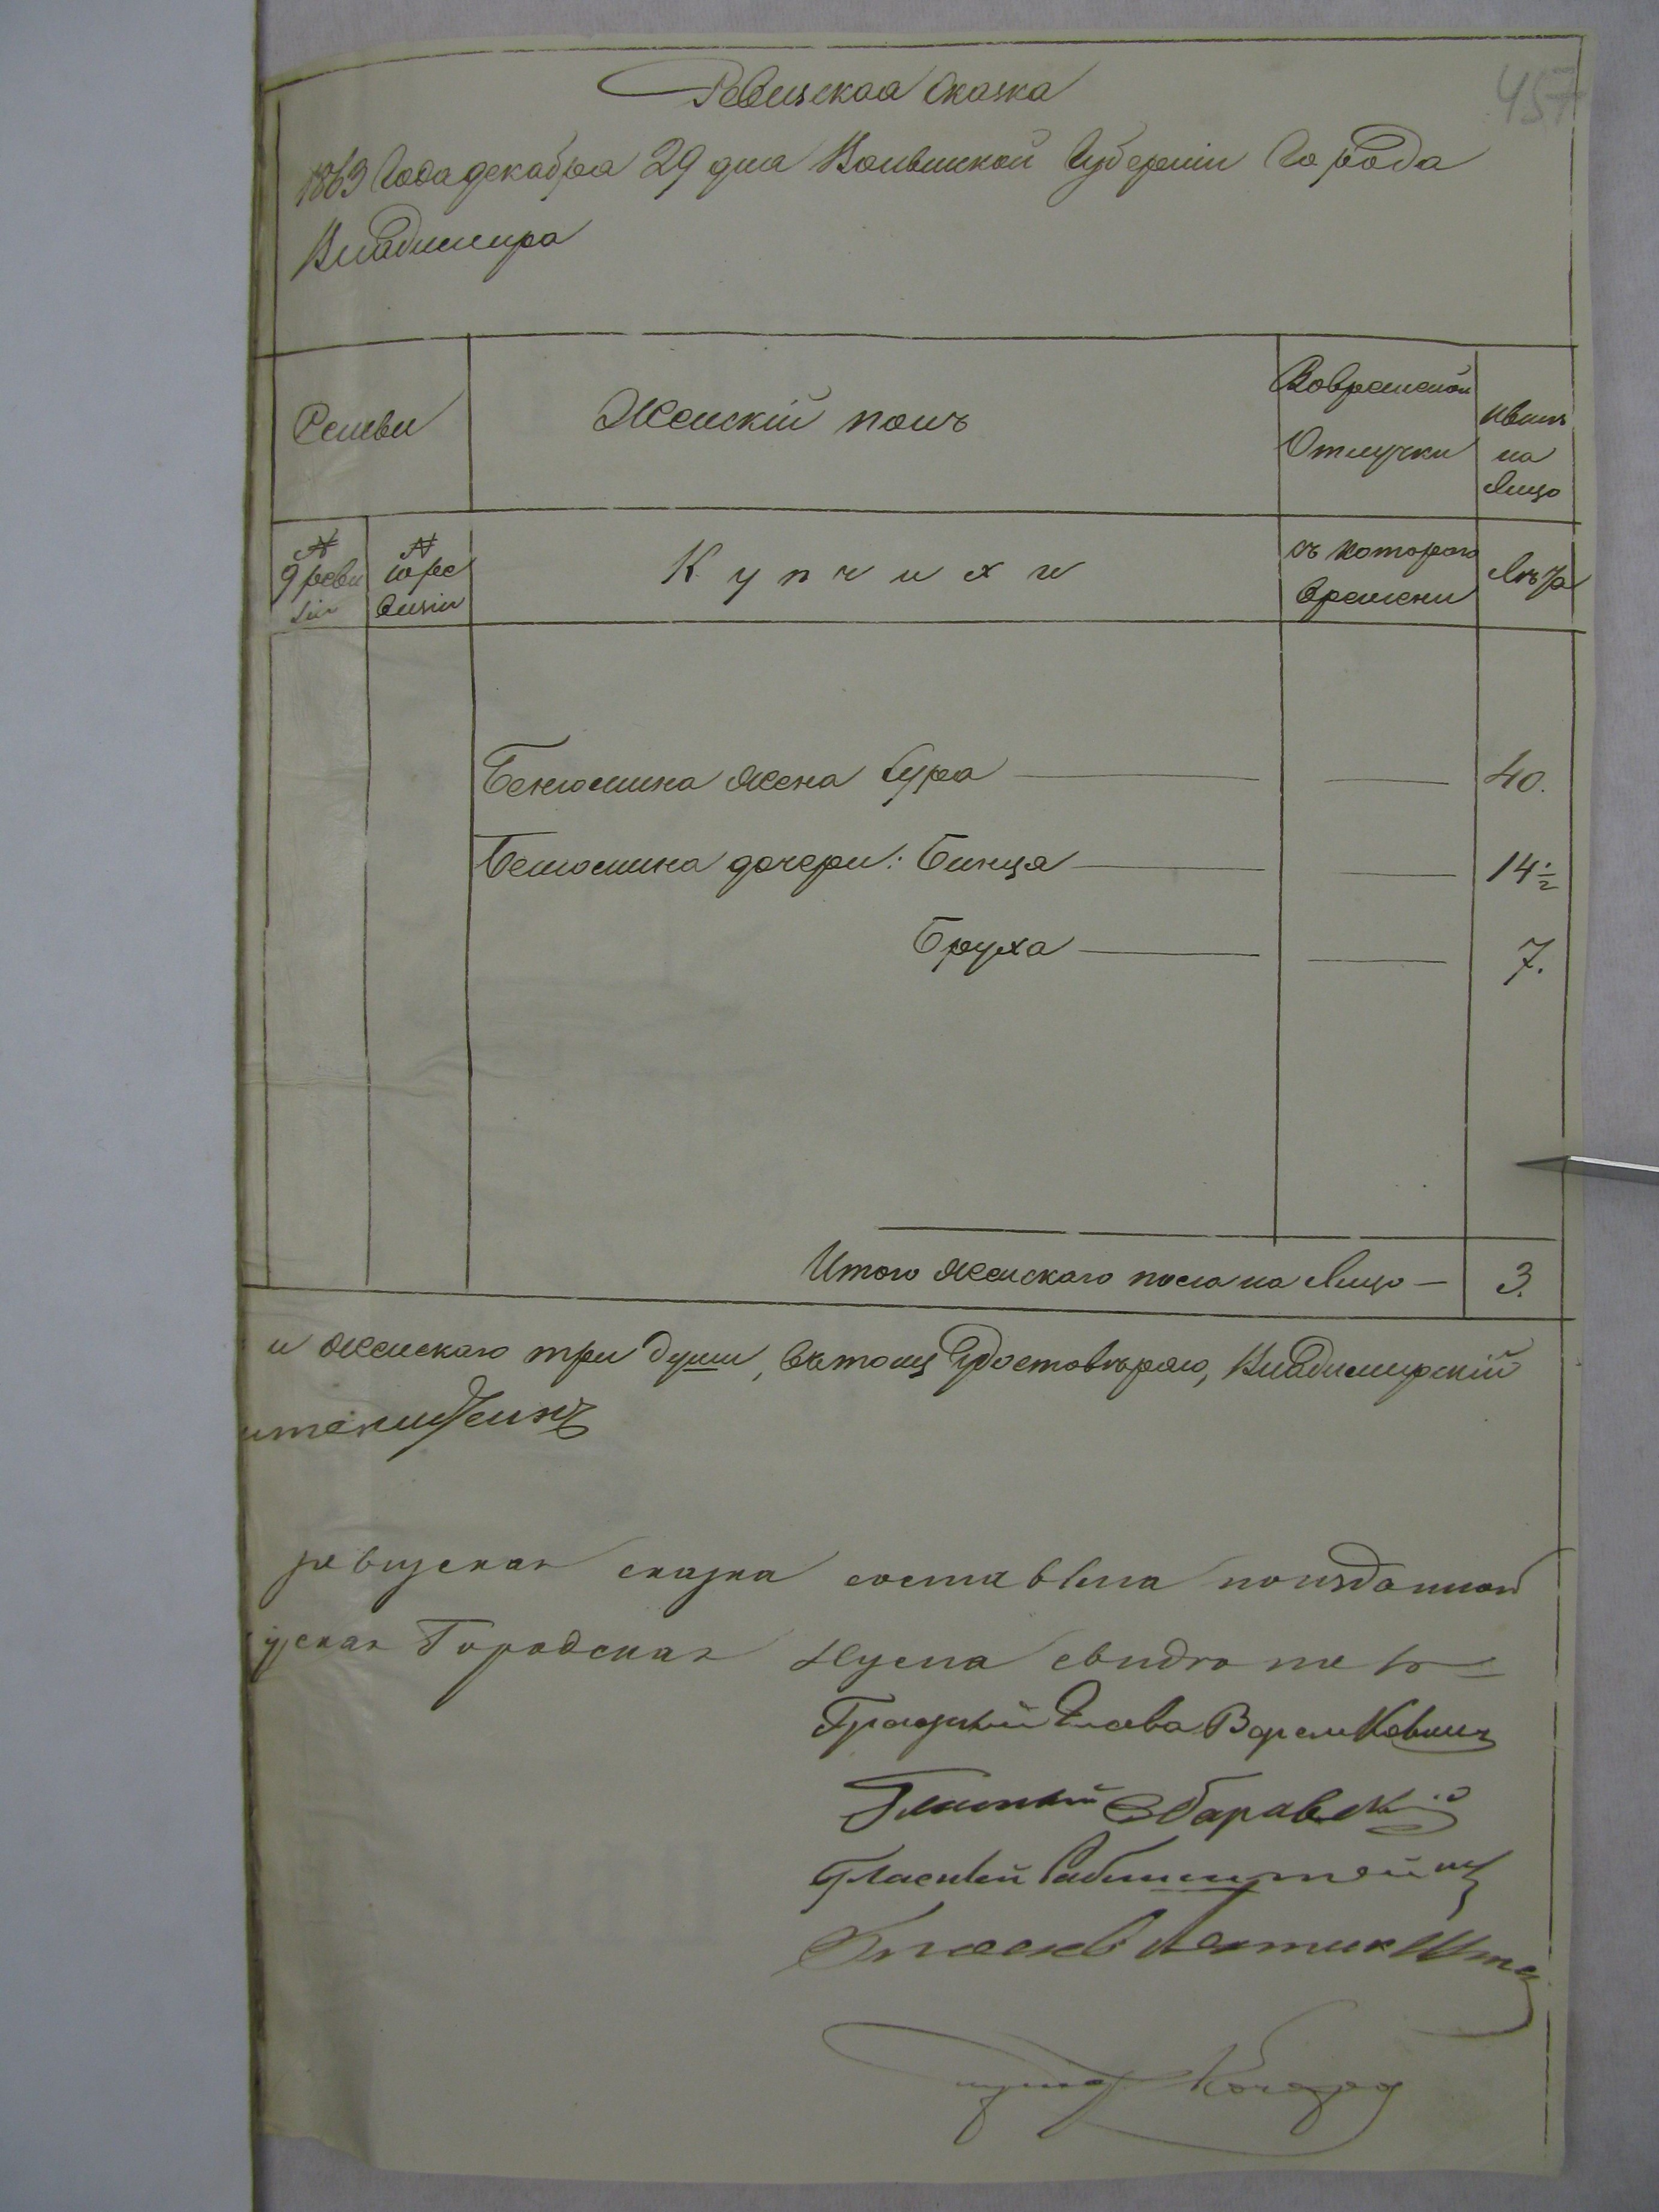 457
Ревизская Сказка
1869 Года декабря 29 дня Волынской Губернии Города
Владимира
Семьи
Женскій полъ
Вовременной
Отлучки
Нынѣ
на
Лицо
№
9 реви
зіи
№
10 ре
визіи
Купчихи
съ котораго
времени
Лѣта
Беньомина жена Сура — — 40.
Беньомина дочери: Бинця — — 14½
Бруха — — 7.
Итого женскаго пола на Лицо — 3.
и женскаго три души, въ томъ Удостовѣряю, Владимирскій
ревизская сказка составлена поизданной
Городская Дума свидѣте
Градскій Глава
Гласный Збаравскій
Гласный